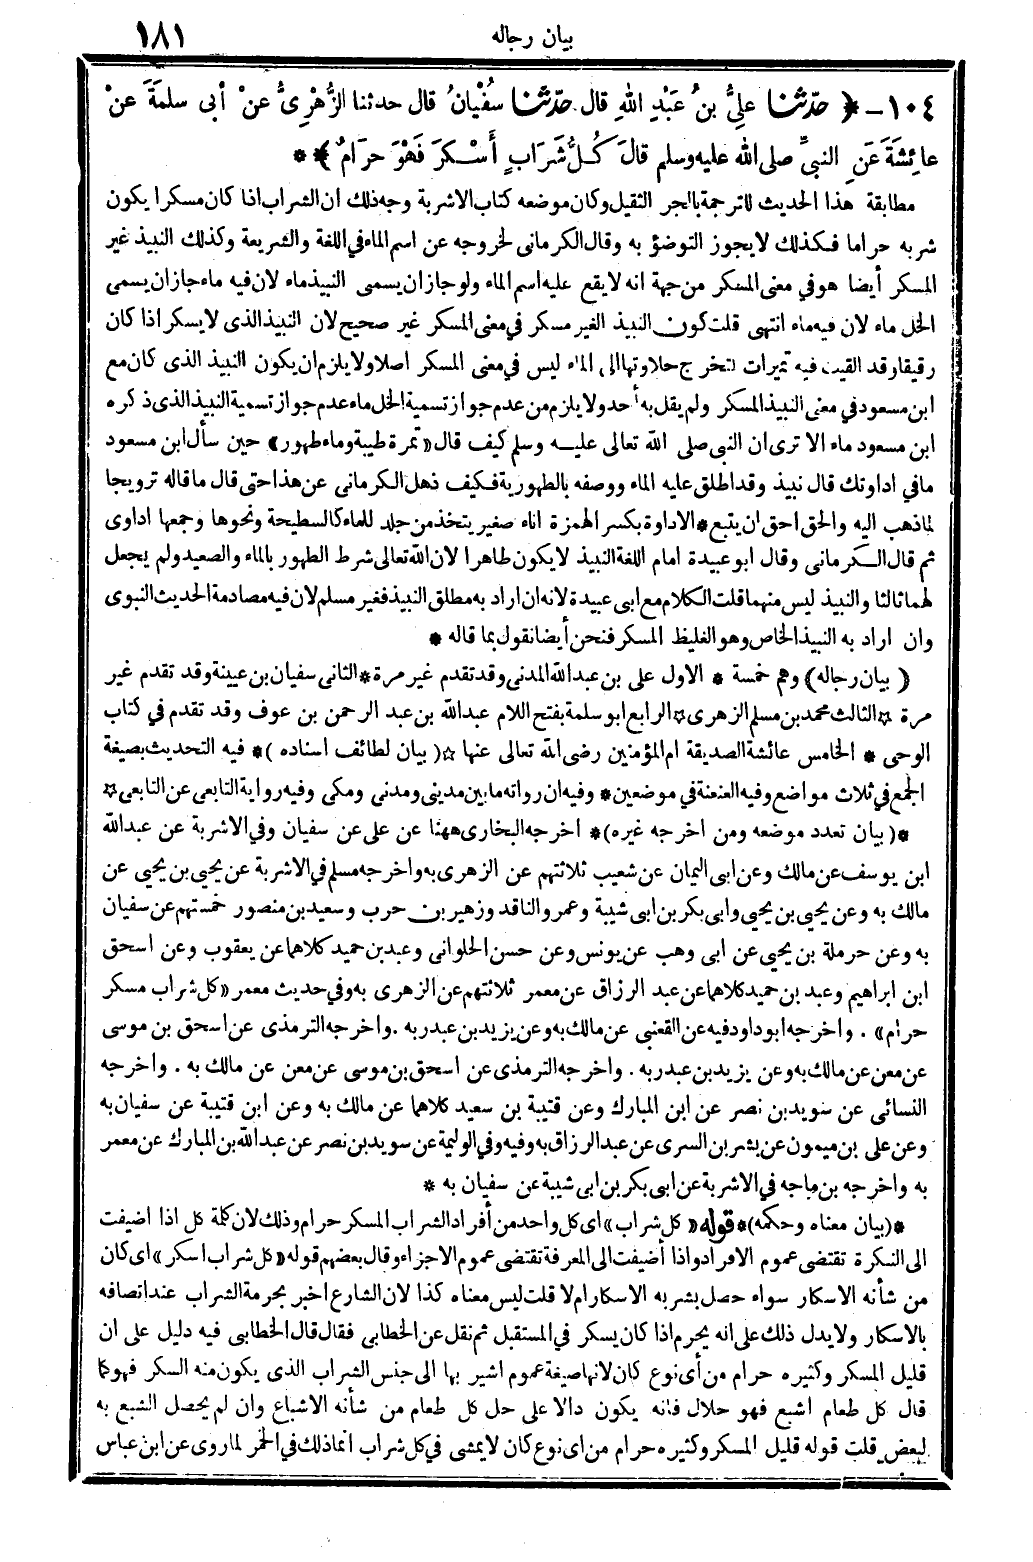 بيان رجاله ١٨١
١٠٤ - ﴿ حدّثنا عَلِيُّ بنُ عَبْدِ اللهِ قال حدّثنا سُفْيانُ قال حدثنا الزُّهْرِىُّ عنْ أبى سلمَةَ عنْ
عائِشَةَ عَنِ النبىِّ صلى الله عليه وسلم قالَ كُلُّ شَرَابٍ أَسْكَرَ فَهْوَ حرَامٌ ﴾ *
مطابقة هذا الحديث للترجمة بالجر الثقيل وكان موضعه كتاب الاشربة وجه ذلك ان الشراب اذا كان مسكرا يكون
شربه حراما فكذلك لا يجوز التوضؤ به وقال الكرمانى لخروجه عن اسم الماء في اللغة والشريعة وكذلك النبيذ غير
المسكر أيضا هو في معنى المسكر من جهة انه لا يقع عليه اسم الماء ولو جاز ان يسمى النبيذ ماء لان فيه ماء جاز ان يسمى
الخل ماء لان فيه ماء انتهى قلت كون النبيذ الغير مسكر في معنى المسكر غير صحيح لان النبيذ الذى لا يسكر اذا كان
رقيقا وقد القيت فيه تميرات لتخرج حلاوتها الى الماء ليس في معنى المسكر اصلا ولا يلزم ان يكون النبيذ الذى كان مع
ابن مسعود في معنى النبيذ المسكر ولم يقل به أحد ولا يلزم من عدم جواز تسمية الخل ماء عدم جواز تسمية النبيذ الذى ذكره
ابن مسعود ماء الا ترى ان النبى صلى الله تعالى عليه وسلم كيف قال «تمرة طيبة وماء طهور» حين سأل ابن مسعود
ما في اداوتك قال نبيذ وقد اطلق عليه الماء ووصفه بالطهورية فكيف ذهل الكرمانى عن هذا حتى قال ما قاله ترويجا
لما ذهب اليه والحق احق ان يتبع * الاداوة بكسر الهمزة اناء صغير يتخذ من جلد للماء كالسطيحة ونحوها وجمعها اداوى
ثم قال الكرمانى وقال ابو عبيدة امام اللغة النبيذ لا يكون طاهرا لان الله تعالى شرط الطهور بالماء والصعيد ولم يجعل
لهما ثالثا والنبيذ ليس منهما قلت الكلام مع ابى عبيدة لانه ان اراد به مطلق النبيذ فغير مسلم لان فيه مصادمة الحديث النبوى
وان اراد به النبيذ الخاص وهو الغليظ المسكر فنحن أيضا نقول بما قاله *
( بيان رجاله ) وهم خمسة * الاول على بن عبد الله المدنى وقد تقدم غير مرة * الثانى سفيان بن عيينة وقد تقدم غير
مرة ☆ الثالث محمد بن مسلم الزهرى ☆ الرابع ابو سلمة بفتح اللام عبد الله بن عبد الرحمن بن عوف وقد تقدم في كتاب
الوحى * الخامس عائشة الصديقة ام المؤمنين رضى الله تعالى عنها ☆ ( بيان لطائف اسناده ) * فيه التحديث بصيغة
الجمع في ثلاث مواضع وفيه العنعنة في موضعين * وفيه ان رواته ما بين مدينى ومدنى ومكى وفيه رواية التابعى عن التابعى ☆
* ( بيان تعدد موضعه ومن اخرجه غيره ) * اخرجه البخارى ههنا عن على عن سفيان وفي الاشربة عن عبد الله
ابن يوسف عن مالك وعن ابى اليمان عن شعيب ثلاثتهم عن الزهرى به واخرجه مسلم في الاشربة عن يحيى بن يحيى عن
مالك به وعن يحيى بن يحيى وابى بكر بن ابى شيبة وعمرو الناقد وزهير بن حرب وسعيد بن منصور خمستهم عن سفيان
به وعن حرملة بن يحيى عن ابى وهب عن يونس وعن حسن الحلوانى وعبد بن حميد كلاهما عن يعقوب وعن اسحق
ابن ابراهيم وعبد بن حميد كلاهما عن عبد الرزاق عن معمر ثلاثتهم عن الزهرى به وفي حديث معمر «كل شراب مسكر
حرام» . واخرجه ابو داود فيه عن القعنبى عن مالك به وعن يزيد بن عبد ربه . واخرجه الترمذى عن اسحق بن موسى
عن معن عن مالك به وعن يزيد بن عبد ربه . واخرجه الترمذى عن اسحق بن موسى عن معن عن مالك به . واخرجه
النسائى عن سويد بن نصر عن ابن المبارك وعن قتيبة بن سعيد كلاهما عن مالك به وعن ابن قتيبة عن سفيان به
وعن على بن ميمون عن بشر بن السرى عن عبد الرزاق به وفيه وفي الوليمة عن سويد بن نصر عن عبد الله بن المبارك عن معمر
به واخرجه بن ماجه في الاشربة عن ابى بكر بن ابى شيبة عن سفيان به *
* (بيان معناه وحكمه) * قوله «كل شراب» اى كل واحد من أفراد الشراب المسكر حرام وذلك لان كلمة كل اذا اضيفت
الى النكرة تقتضى عموم الافراد واذا أضيفت الى المعرفة تقتضى عموم الاجزاء وقال بعضهم قوله «كل شراب اسكر» اى كان
من شأنه الاسكار سواء حصل بشربه الاسكار ام لا قلت ليس معناه كذا لان الشارع اخبر بحرمة الشراب عند اتصافه
بالاسكار ولا يدل ذلك على انه يحرم اذا كان يسكر في المستقبل ثم نقل عن الخطابى فقال قال الخطابى فيه دليل على ان
قليل المسكر وكثيره حرام من أى نوع كان لانها صيغة عموم اشير بها الى جنس الشراب الذى يكون منه السكر فهو كما
قال كل طعام اشبع فهو حلال فانه يكون دالا على حل كل طعام من شأنه الاشباع وان لم يحصل الشبع به
لبعض قلت قوله قليل المسكر وكثيره حرام من اى نوع كان لا يمشى في كل شراب انما ذلك في الخمر لما روى عن ابن عباس